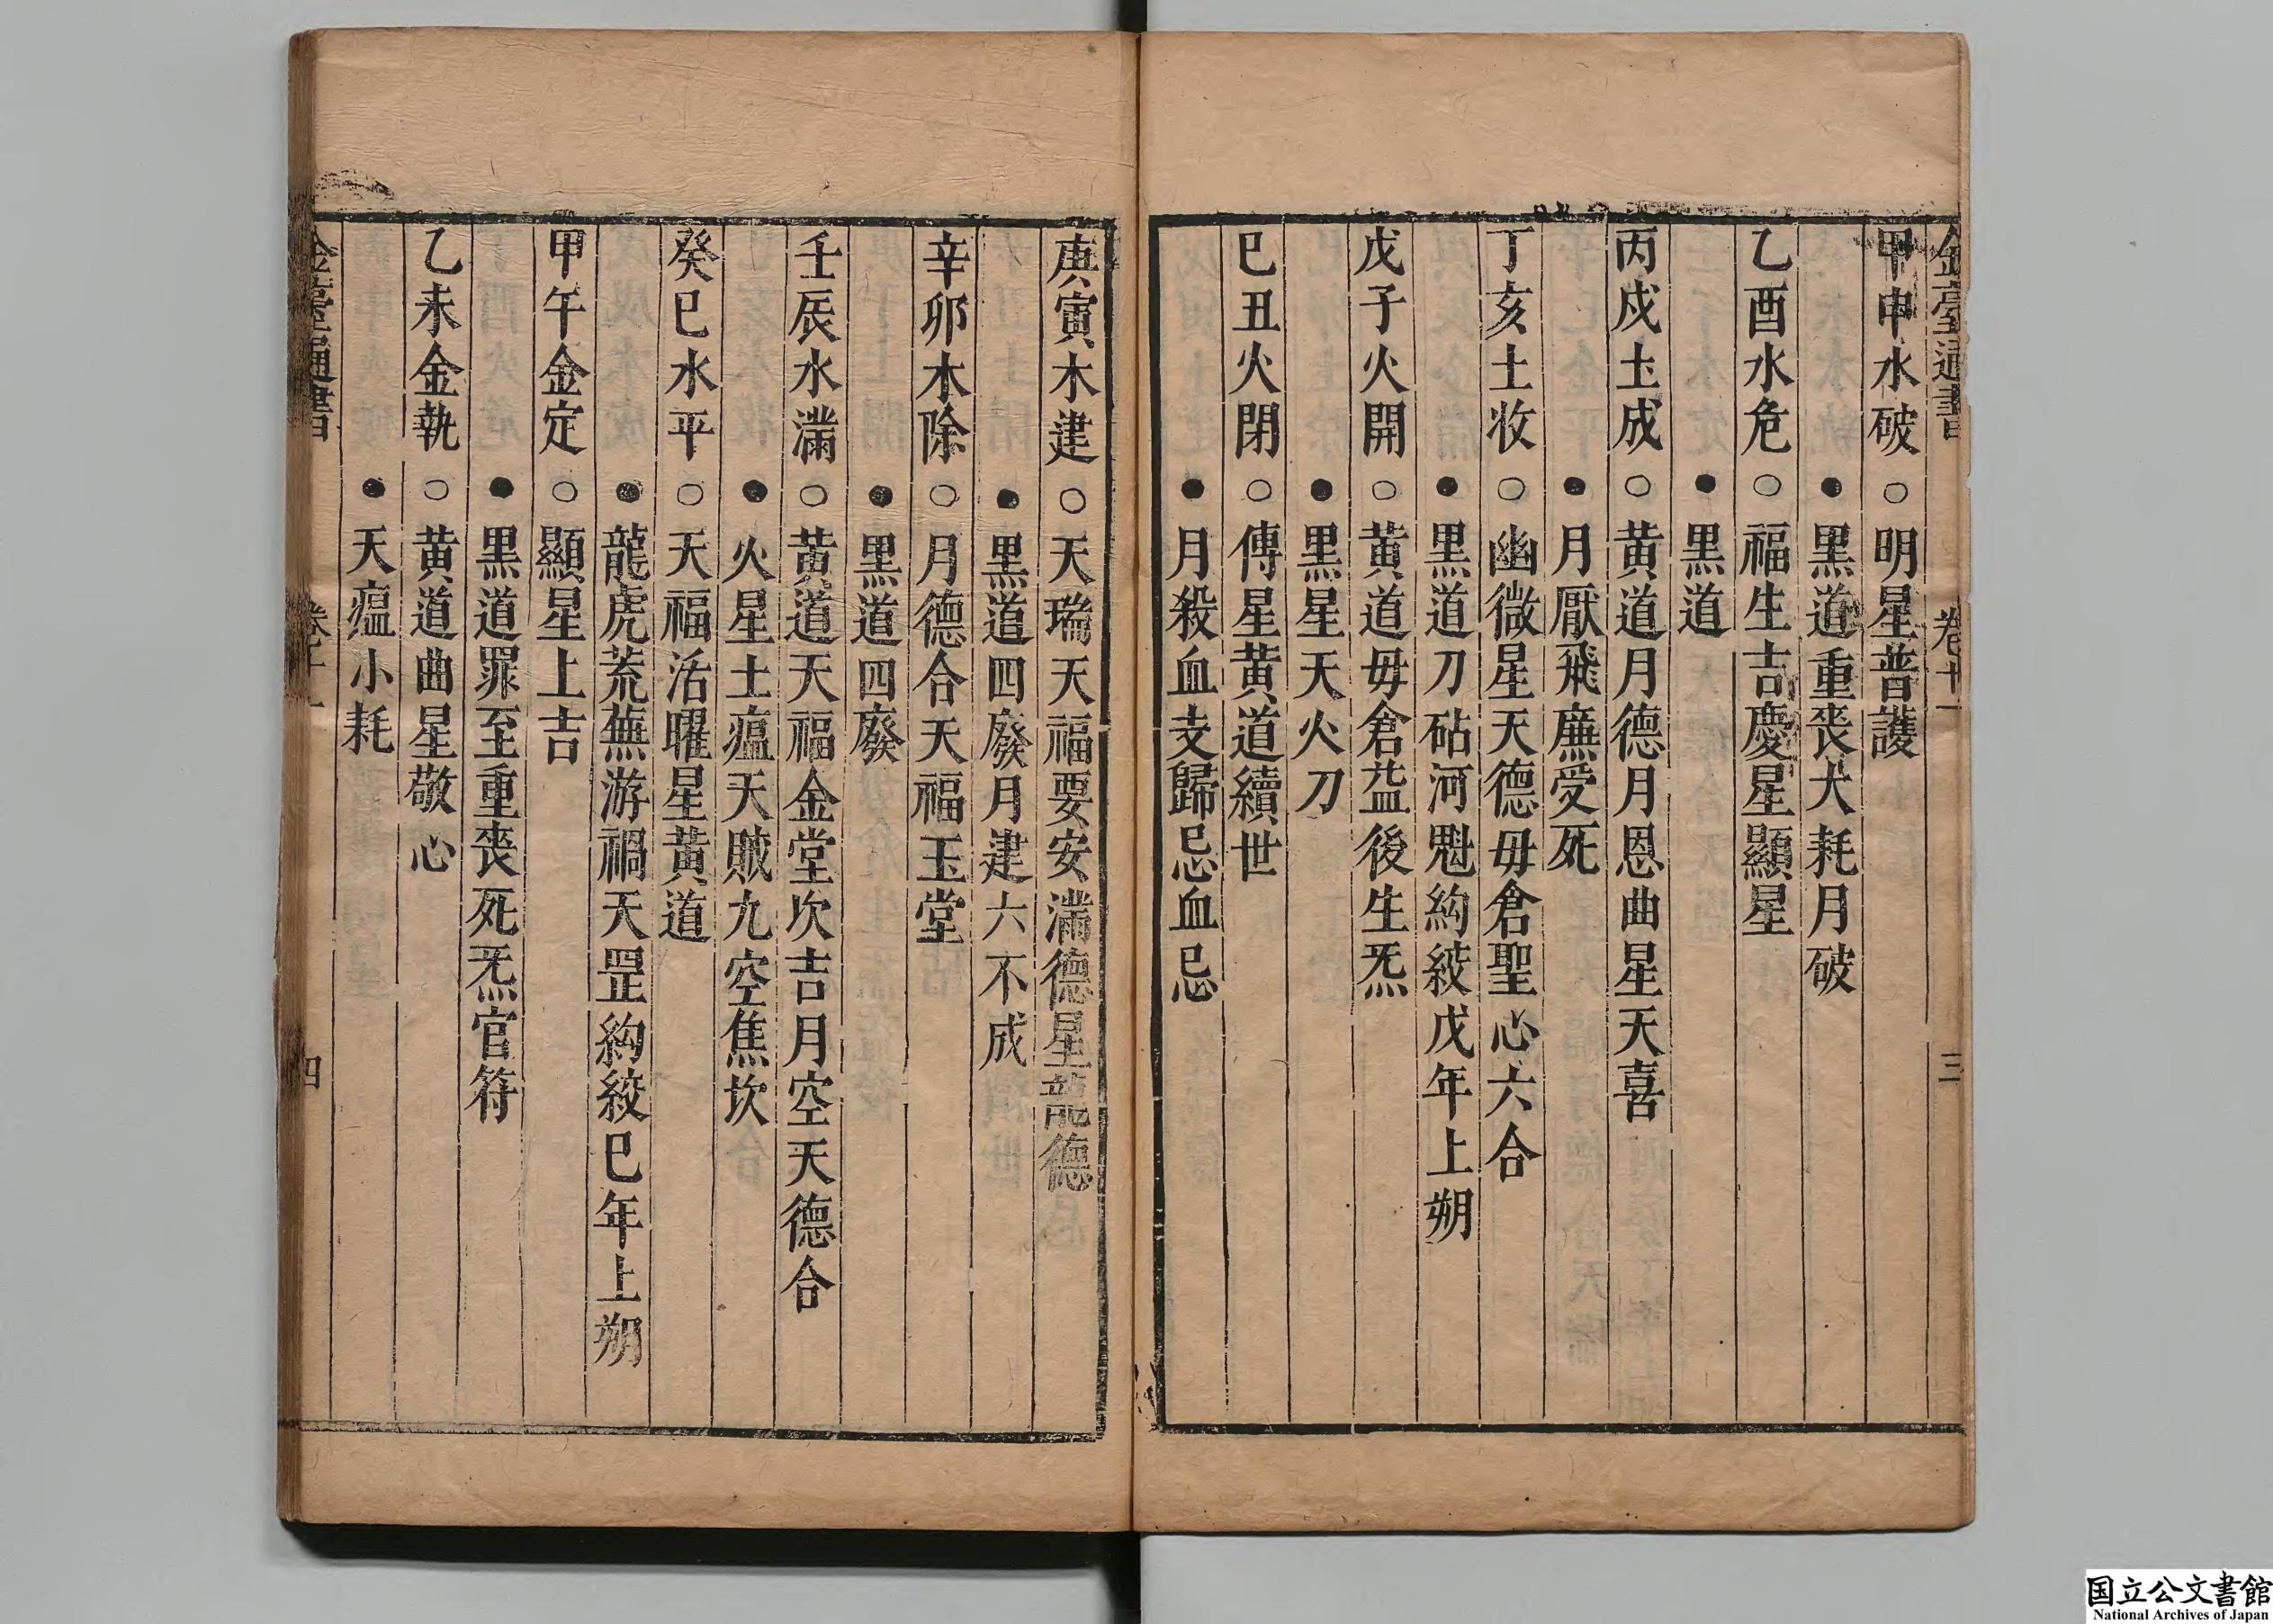 金臺通書 卷十一 三
甲申水破○明星普護
●黒道重喪大耗月破
乙酉水危○福生吉慶星顯星
●黒道
丙戍土成○黃道月德月恩曲星天喜
●月厭飛廉受死
丁亥土收○幽微星天德毋倉聖心六合
●黒道刀砧河魁絇絞戊年上朔
戊子火開○黃道毋倉益後生炁
●黒星天火刀
巳丑火閉○傳星黃道續世
●月殺血支歸忌血忌
庚寅木建○天瑞天福要安滿德星龍德
●黒道四廢月建六不成
辛卯木除○月德合天福玉堂
●黒道四廢
壬辰水滿○黃道天福金堂次吉月空天德合
●火星土瘟天賊九空焦坎
癸巳水平○天福活曜星黃道
●龍虎荒蕪游禍天罡絇絞巳年上朔
甲午金定○顯星上吉
●黒道罪至重喪死炁官符
乙未金執○黃道曲星敬心
●天瘟小耗
金臺通書 卷十一 四
国立公文書館
National Archives of Japan